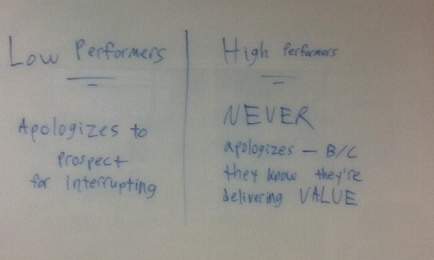 Low Performers
Apologizes to
prospect
for interrupting
High Performers
NEVER
apologizes — B/C
they know they're
delivering VALUE